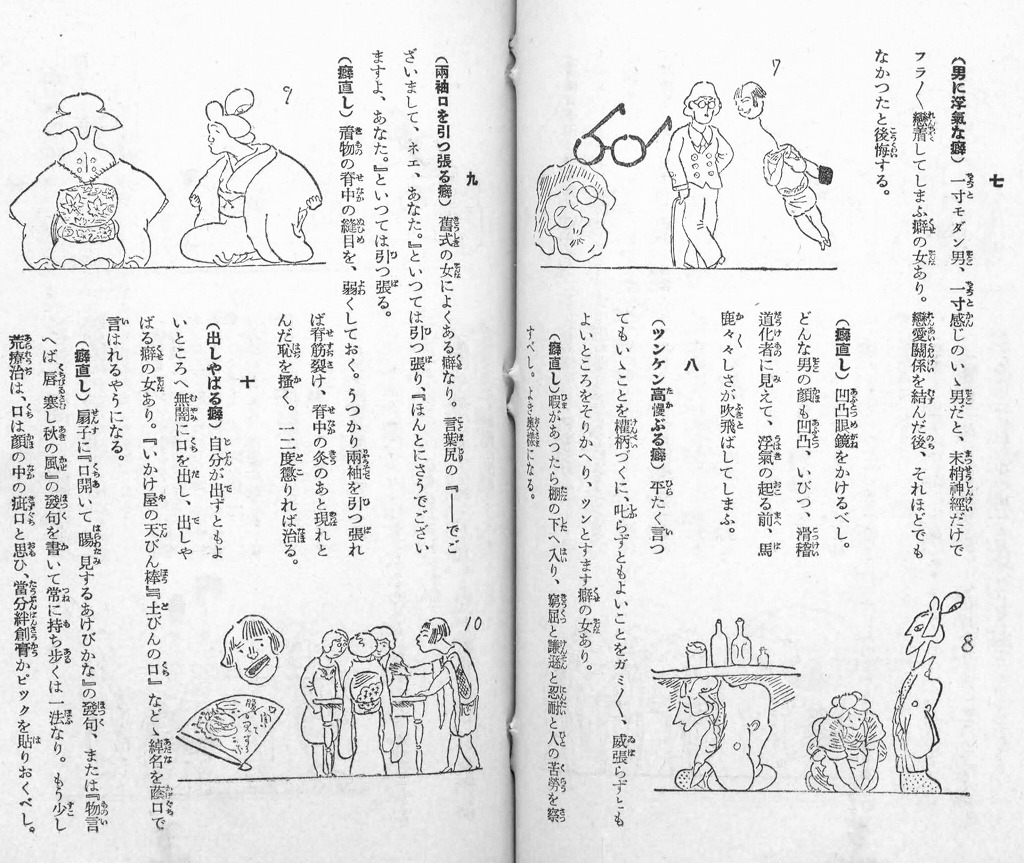 七
(男に浮氣な癖) 一寸モダン男、一寸感じのいゝ男だと、末梢神經だけで
フラ〳〵戀着してしまふ癖の女あり。戀愛關係を結んだ後、それほどでも
なかつたと後悔する。
7
(癖直し) 凹凸眼鏡をかけるべし。
どんな男の顔も凹凸、いびつ、滑稽
道化者に見えて、浮氣の起る前、馬
鹿々々しさが吹飛ばしてしまふ。
八
(ツンケン高慢ぶる癖) 平たく言つ
てもいゝことを權柄づくに、叱らずともよいことをガミ〳〵、威張らずとも
よいところをそりかへり、ツンとすます癖の女あり。
(癖直し) 暇があつたら棚の下へ入り、窮屈と謙遜と忍耐と人の苦勞を察
すべし。よき奥樣になる。
8
九
(兩袖口を引つ張る癖) 舊式の女によくある癖なり。言葉尻の『――でご
ざいまして、ネエ、あなた。』といつては引つ張り、『ほんとにさうでござい
ますよ、あなた。』といつては引つ張る。
(癖直し) 着物の脊中の縫目を、弱くしておく。うつかり兩袖を引つ張れ
ば脊筋裂け、脊中の灸のあと現れと
んだ恥を搔く。一二度懲りれば治る。
9
十
(出しやばる癖) 自分が出ずともよ
いところへ無闇に口を出し、出しや
ばる癖の女あり。『いかけ屋の天びん棒』『土びんの口』などゝ綽名を蔭口で
言はれるやうになる。
(癖直し) 扇子に『口開いて腸見するあけびかな』の發句、または『物言
へば唇寒し秋の風』の發句を書いて常に持ち歩くは一法なり。もう少し
荒療治は、口は顔の中の疵口と思ひ、當分絆創膏かピックを貼りおくべし。
10